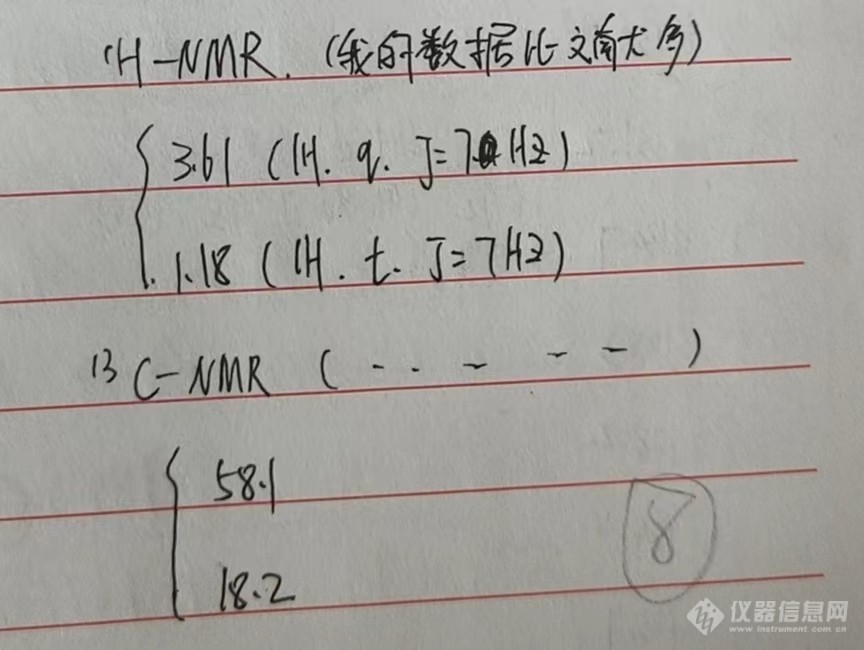 ¹H-NMR. (我的数据比文南大多)
3.61 (1H. q. J=7 Hz)
1.18 (1H. t. J=7HZ)
13 C-NMR ( - - - - - )
58.1
18.2
8
仪器信息网
www.instrument.com.cn